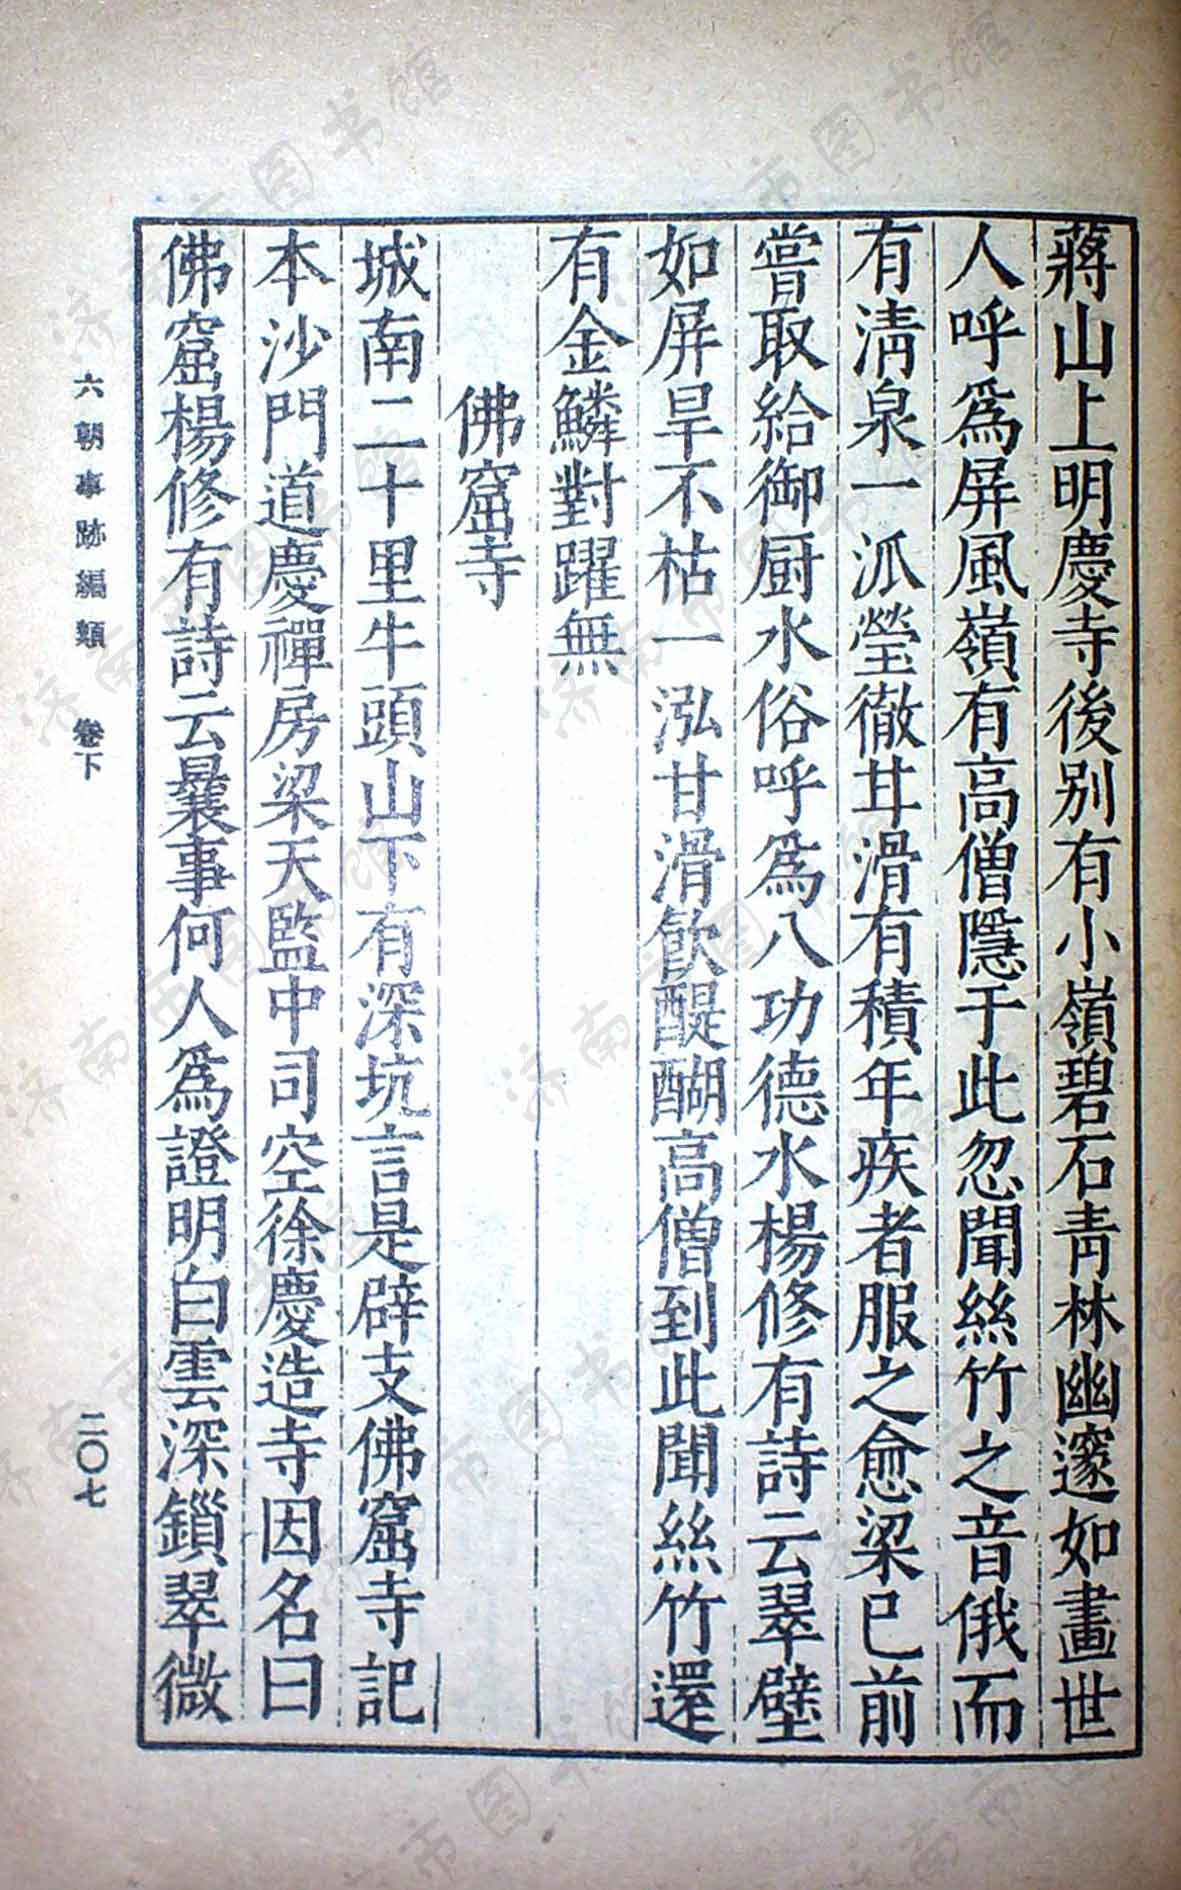 蔣山上明慶寺後別有小嶺碧石靑林幽邃如畫世
人呼爲屏風嶺有高僧隱于此忽聞絲竹之音俄而
有淸泉一派瑩徹甘滑有積年疾者服之愈梁已前
嘗取給御厨水俗呼爲八功德水楊修有詩云翠壁
如屏旱不枯一泓甘滑飮醍醐高僧到此聞絲竹還
有金鱗對躍無
佛窟寺
城南二十里牛頭山下有深坑言是辟支佛窟寺記
本沙門道慶禪房梁天監中司空徐慶造寺因名曰
佛窟楊修有詩云曩事何人爲證明白雲深鎖翠微
六朝事跡編類 卷下
二〇七
济南市图书馆